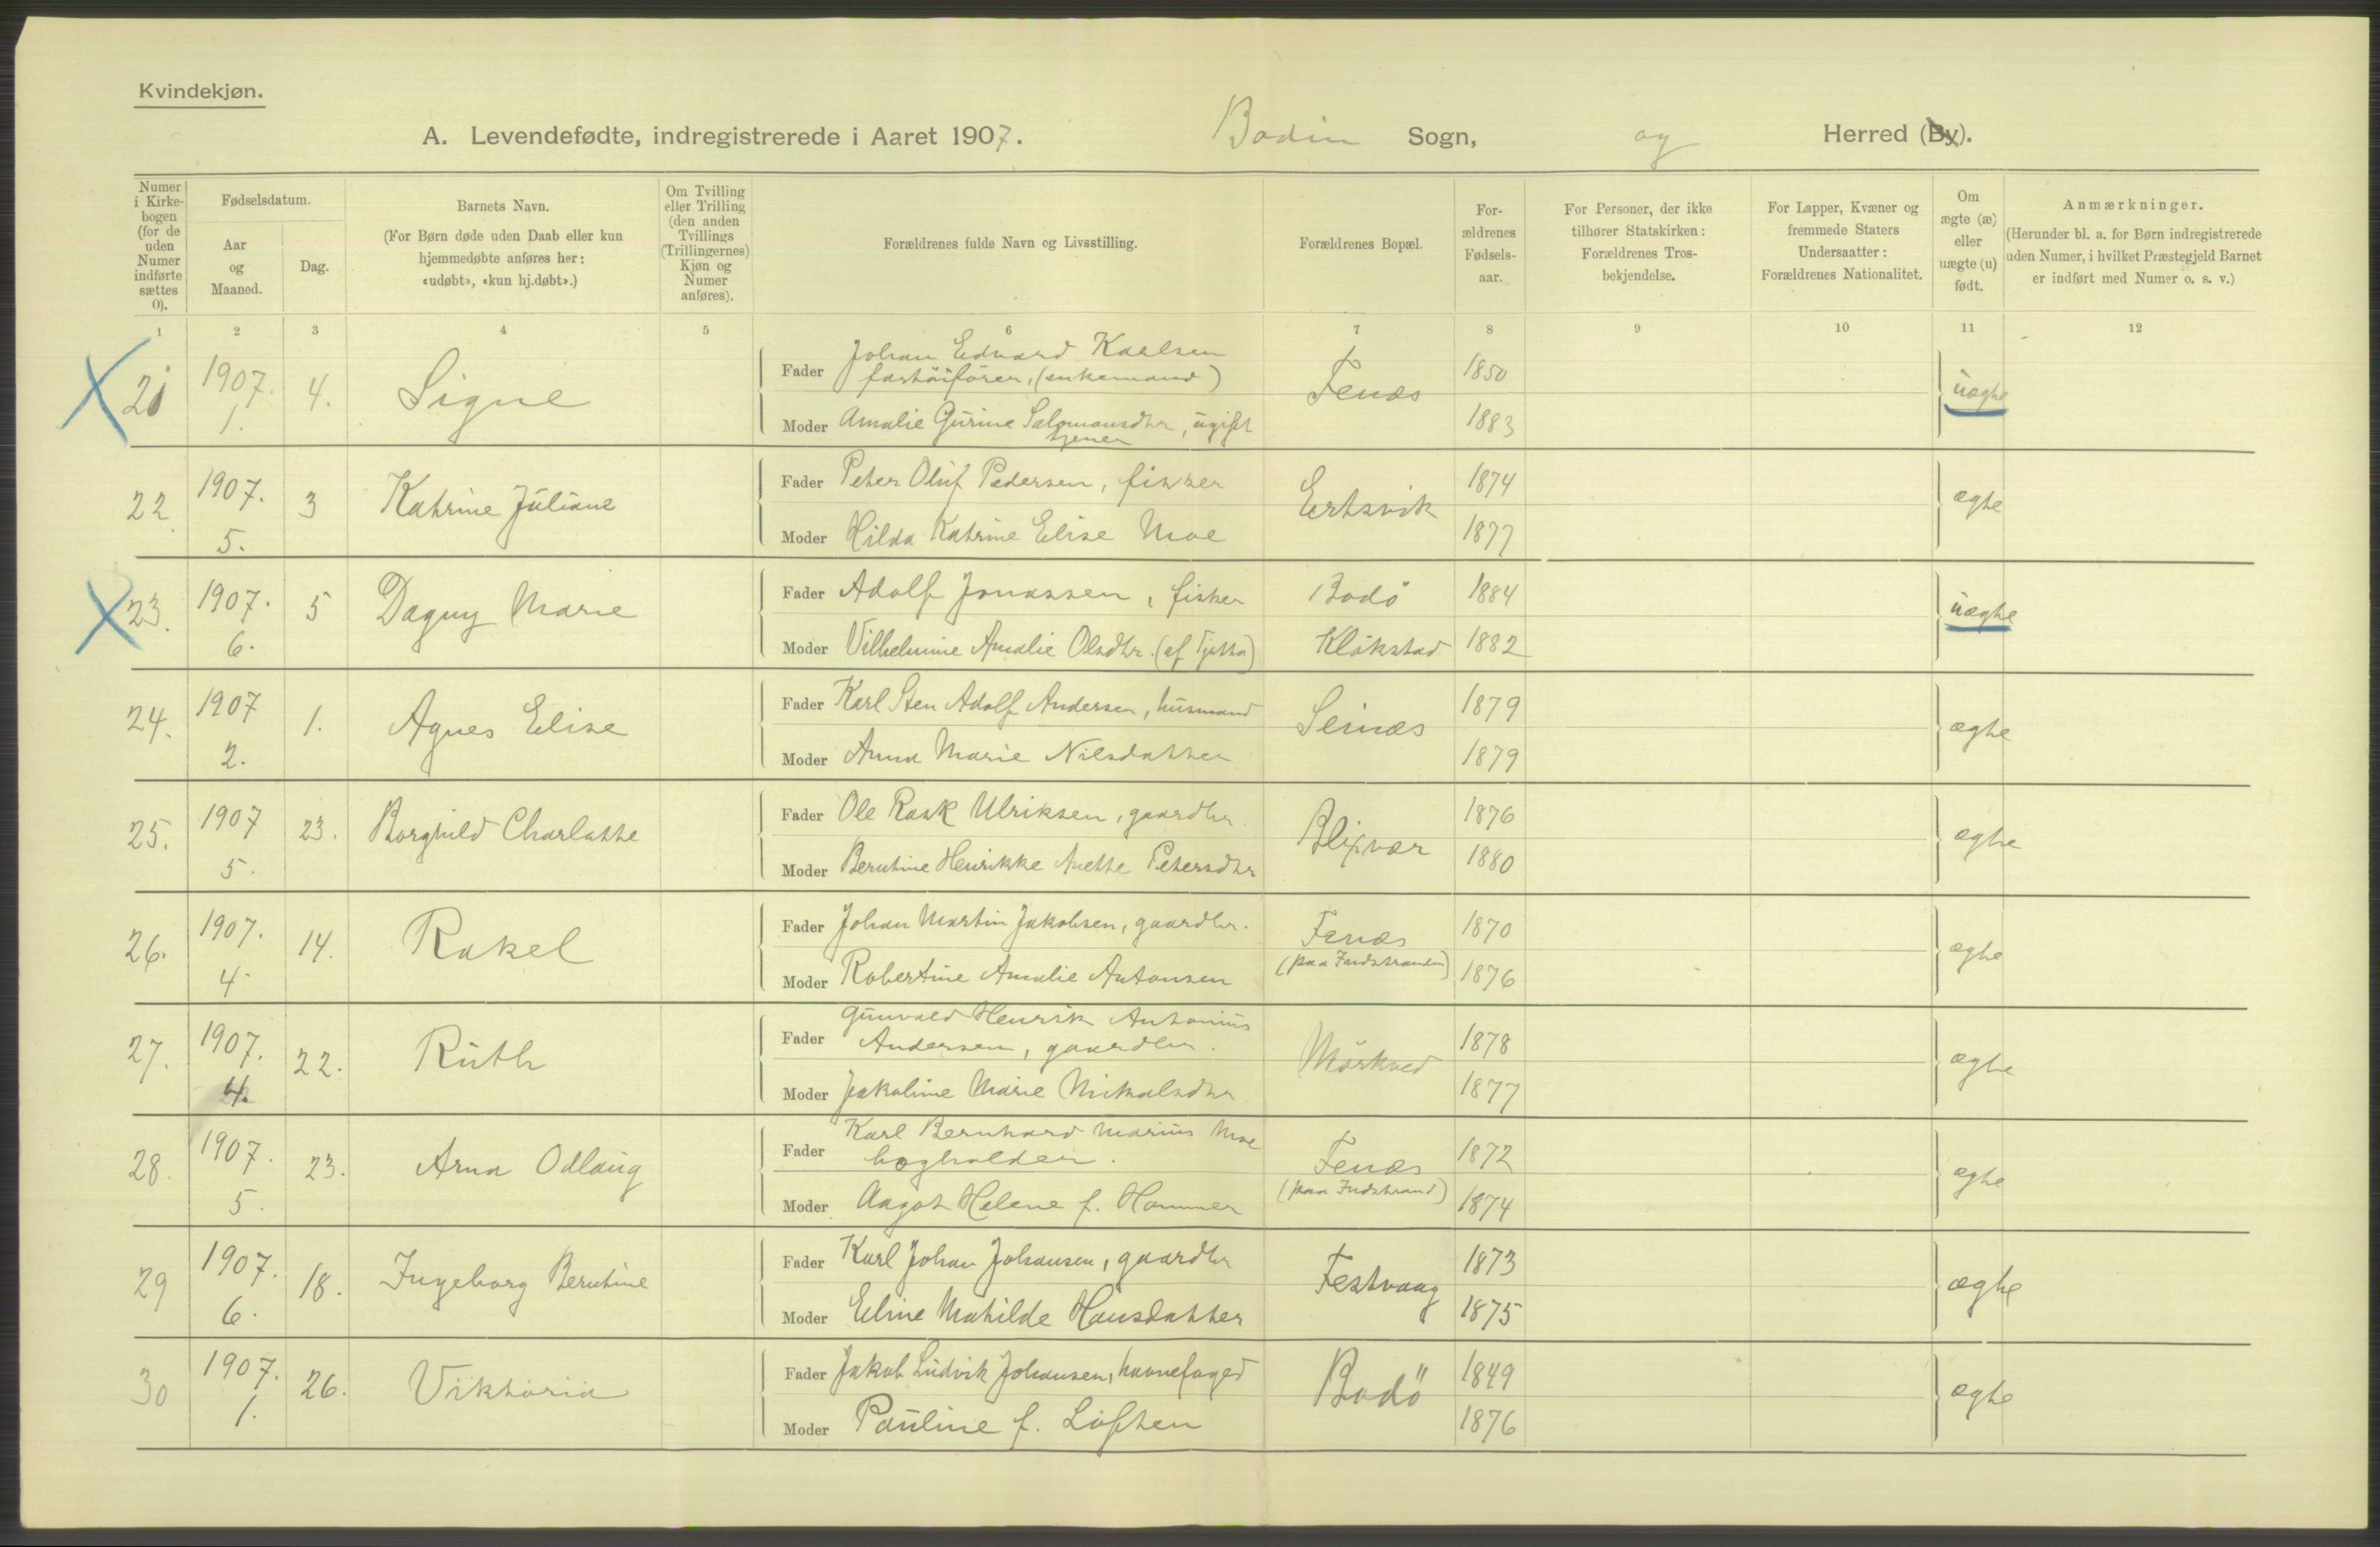 Kvindekjøn.
A. Levendefødte, indregistrerede i Aaret 1907. Bodin Sogn, og Herred (By).
Numer i Kirkebogen (for de uden Numer indførte sættes 0).
Fødselsdatum.
Aar og Maaned.
Dag.
Barnets Navn.
(For Børn døde uden Daab eller kun hjemmedøbte anføres her: «udøbt», «kun hj.døbt».)
Om Tvilling eller Trilling (den anden Tvillings (Trillingernes) Kjøn og Numer anføres).
Forældrenes fulde Navn og Livsstilling.
Forældrenes Bopæl.
Forældrenes Fødselsaar.
For Personer, der ikke tilhører Statskirken: Forældrenes Trosbekjendelse.
For Lapper, Kvæner og fremmede Staters Undersaatter: Forældrenes Nationalitet.
Om ægte (æ) eller uægte (u) født.
Anmærkninger.
(Herunder bl. a. for Børn indregistrerede uden Numer, i hvilket Præstegjeld Barnet er indført med Numer o. s. v.)
1 2 3 4 5 6 7 8 9 10 11 12
21 1907. 1. 4. Signe
Fader Johan Edvard Kaelsen
(enkemand)
Fenæs 1850 uægte
Moder Amalie Gurine Salomonsdtr, ugift
tjener
1883
22 1907. 5. 3 Katrine Juliane
Fader Peter Oluf Pedersen, fisker Ertsvik 1874 ægte
Moder Hilda Katrine Elise Moe 1877
23. 1907. 6. 5 Dagny Marie
Fader Adolf Jonassen, fisker Bodö 1884 uægte
Moder Vilhelmine Amalie Olsdtr. (af Tjøtta) Klökstad 1882
24. 1907 2. 1. Agnes Elise
Fader Karl Sten Adolf Andersen, husmand Seinæs 1879 ægte
Moder Anna Marie Nilsdatter 1879
25. 1907 5. 23. Borghild Charlotte
Fader Ole Rask Ulriksen, gaardbr. Blixvær 1876 ægte
Moder Berntine Henrikke Anette Petersdtr 1880
26. 1907. 4. 14. Rakel
Fader Johan Martin Jakobsen, gaardbr. Fenæs 1870 ægte
(paa Indstranden)
Moder Robertine Amalie Antonsen 1876
27. 1907. 4. 22. Ruth
Fader Gunvald Henrik Antonius
Andersen, gaardbr. Mörkved 1878 ægte
Moder Jakoline Marie Nikolsdtr 1877
28. 1907. 5. 23. Arna Odlaug
Fader Karl Bernhard Marius Moe
bogholder. Fenæs 1872 ægte
(paa Indstrand)
Moder Aagot Helene f. Hammer 1874
29 1907. 6. 18. Ingeborg Berntine
Fader Karl Johan Johansen, gaardbr Festvaag 1873 ægte
Moder Eline Mathilde Hansdatter 1875
30 1907. 1. 26. Viktoria
Fader Jakob Ludvik Johansen, havnefoged Bodö 1849 ægte
Moder Pauline f. Löften 1876